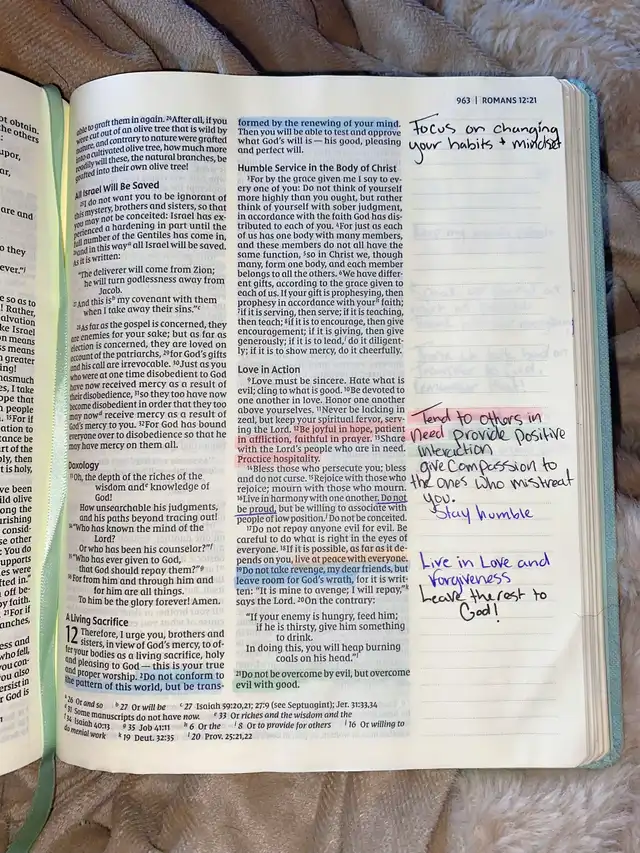 ot obtain.
the others
upor,
ar,
are and
so they
ever.”
so as to
! Rather,
alvation
ke Israel
on means
ss means
greater
ing!
asmuch
es, I take
ope that
people
15For if
ation to
tance be
bly, then
t is holy,
ve been
ild olive
ong the
urishing
consid-
se: You do
upports
es were
fted in.”
because
by faith.
21For if
ranches,
ess and
who fell,
you con-
you also
ersist in
r God is
963 | ROMANS 12:21
able to graft them in again. 24After all, if you
were cut out of an olive tree that is wild by
nature, and contrary to nature were grafted
into a cultivated olive tree, how much more
readily will these, the natural branches, be
grafted into their own olive tree!
All Israel Will Be Saved
25I do not want you to be ignorant of
this mystery, brothers and sisters, so that
you may not be conceited: Israel has ex-
perienced a hardening in part until the
full number of the Gentiles has come in,
26and in this way all Israel will be saved.
As it is written:
“The deliverer will come from Zion;
he will turn godlessness away from
Jacob.
27And this is my covenant with them
when I take away their sins.”
28As far as the gospel is concerned, they
are enemies for your sake; but as far as
election is concerned, they are loved on
account of the patriarchs, 29for God’s gifts
and his call are irrevocable. 30Just as you
who were at one time disobedient to God
have now received mercy as a result of
their disobedience, 31so they too have now
become disobedient in order that they too
may now receive mercy as a result of
God’s mercy to you. 32For God has bound
everyone over to disobedience so that he
may have mercy on them all.
Doxology
33Oh, the depth of the riches of the
wisdom and knowledge of
God!
How unsearchable his judgments,
and his paths beyond tracing out!
34“Who has known the mind of the
Lord?
Or who has been his counselor?”
35“Who has ever given to God,
that God should repay them?”
36For from him and through him and
for him are all things.
To him be the glory forever! Amen.
A Living Sacrifice
12 Therefore, I urge you, brothers and
sisters, in view of God’s mercy, to of-
fer your bodies as a living sacrifice, holy
and pleasing to God — this is your true
and proper worship. 2Do not conform to
the pattern of this world, but be trans-
formed by the renewing of your mind.
Then you will be able to test and approve
what God’s will is — his good, pleasing
and perfect will.
Humble Service in the Body of Christ
3For by the grace given me I say to ev-
ery one of you: Do not think of yourself
more highly than you ought, but rather
think of yourself with sober judgment,
in accordance with the faith God has
distributed to each of you. 4For just as each
of us has one body with many members,
and these members do not all have the
same function, 5so in Christ we, though
many, form one body, and each member
belongs to all the others. 6We have differ-
ent gifts, according to the grace given to
each of us. If your gift is prophesying, then
prophesy in accordance with your faith;
7if it is serving, then serve; if it is teaching,
then teach; 8if it is to encourage, then give
encouragement; if it is giving, then give
generously; if it is to lead, do it diligent-
ly; if it is to show mercy, do it cheerfully.
Love in Action
9Love must be sincere. Hate what is
evil; cling to what is good. 10Be devoted to
one another in love. Honor one another
above yourselves. 11Never be lacking in
zeal, but keep your spiritual fervor, serv-
ing the Lord. 12Be joyful in hope, patient
in affliction, faithful in prayer. 13Share
with the Lord’s people who are in need.
Practice hospitality.
14Bless those who persecute you; bless
and do not curse. 15Rejoice with those who
rejoice; mourn with those who mourn.
16Live in harmony with one another. Do not
be proud, but be willing to associate with
people of low position. Do not be conceited.
17Do not repay anyone evil for evil. Be
careful to do what is right in the eyes of
everyone. 18If it is possible, as far as it de-
pends on you, live at peace with everyone.
19Do not take revenge, my dear friends, but
leave room for God’s wrath, for it is writ-
ten: “It is mine to avenge; I will repay,”
says the Lord. 20On the contrary:
“If your enemy is hungry, feed him;
if he is thirsty, give him something
to drink.
In doing this, you will heap burning
coals on his head.”
21Do not be overcome by evil, but overcome
evil with good.
Focus on changing
your habits + mindset
Tend to others in
need provide positive
interaction
give compassion to
the ones who mistreat
you.
Stay humble
Live in Love and
Forgiveness
Leave the rest to
God!
a 26 Or and so b 27 Or will be c 27 Isaiah 59:20,21; 27:9 (see Septuagint); Jer. 31:33,34
d 31 Some manuscripts do not have now. e 33 Or riches and the wisdom and the
f 34 Isaiah 40:13 g 35 Job 41:11 h 6 Or the i 8 Or to provide for others j 16 Or willing to
do menial work k 19 Deut. 32:35 l 20 Prov. 25:21,22